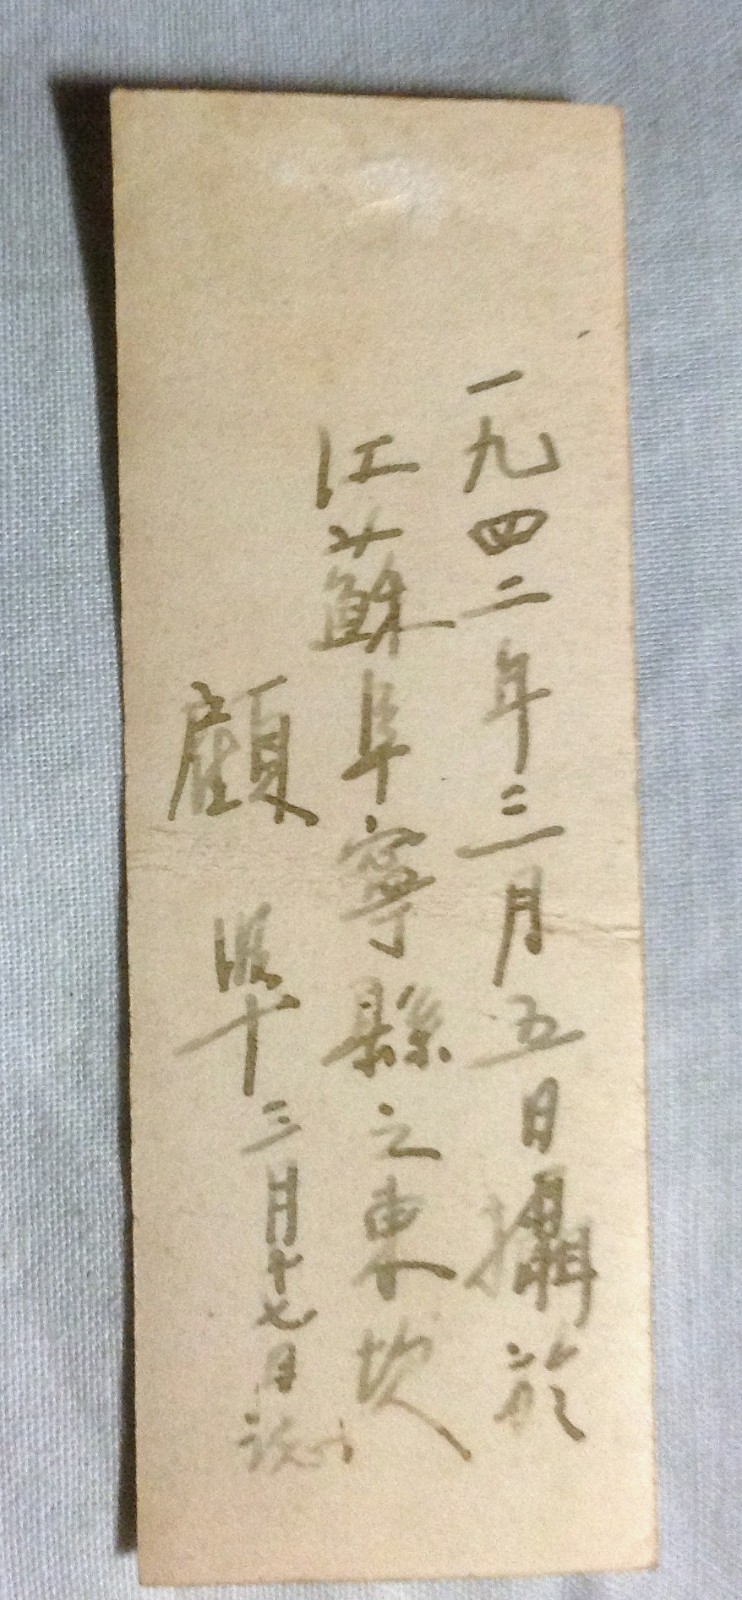 一九四二年三月五日攝於
江蘇阜寧縣之東坎
顧 準 三月十七日誌